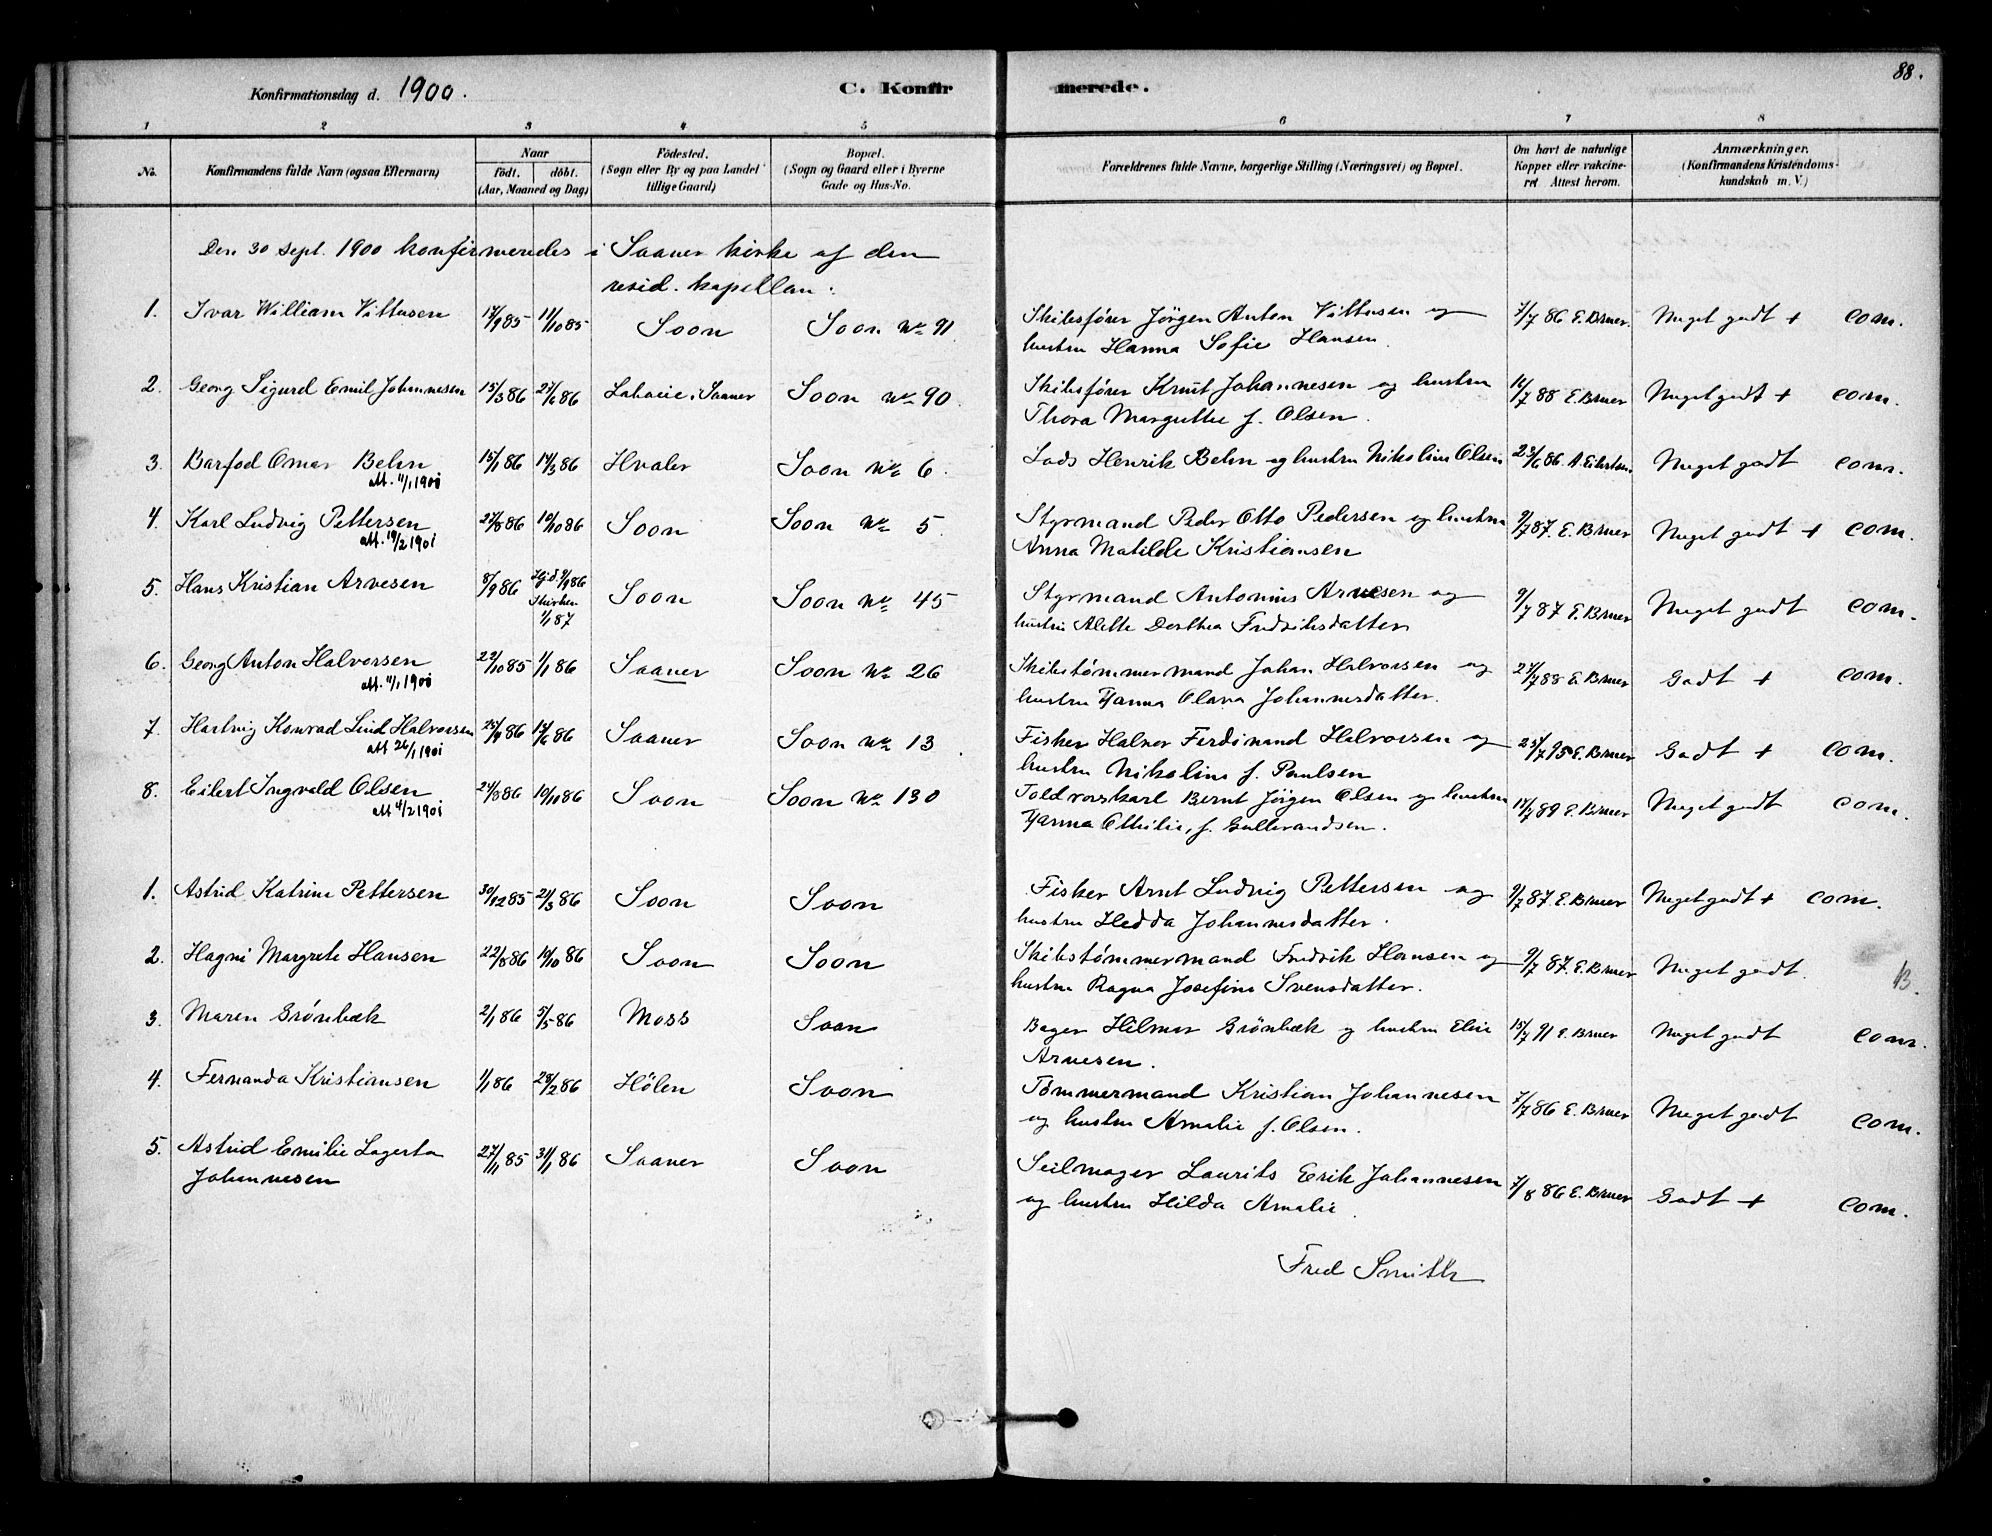 88.
Konfirmationsdag d. 1900.
C. Konfirmerede.
1 2 3 4 5 6 7 8
No.
Konfirmandens fulde Navn (ogsaa Efternavn)
Naar
födt. döbt.
(Aar, Maaned og Dag)
Födested.
(Sogn eller By og paa Landet
tillige Gaard)
Bopæl.
(Sogn og Gaard eller i Byerne
Gade og Hus-No.
Forældrenes fulde Navne, borgerlige Stilling (Næringsvei) og Bopæl.
Om havt de naturlige
Kopper eller vakcine-
ret Attest herom.
Anmærkninger.
(Konfirmandens Kristendoms-
kundskab m. V.)
Den 30 Sept. 1900 konfirmeredes i Saaner kirke af den
resid. kapellan:
1. Ivar William Vittusen 17/9 85 11/10 85 Soon Soon No 91 Skibsfører Jörgen Anton Vittusen og 7/7 86 E. Bruer. Meget godt + com.
hustru Hanna Sofie Hansen.
2. Georg Sigurd Emil Johannesen 15/3 86 27/6 86 Labaeie i Saaner Soon No 90. Skibsfører Knut Johannesen og hustru 11/7 88 E. Bruer Meget godt + com.
Thora Margrethe f. Olsen.
3. Barfod Omar Behn 15/1 86 14/3 86 Hvaler Soon No 6. Lods Henrik Behn og hustru Nikoline Olsen 23/6 86. A. Eilertsen Meget godt com.
att. 11/1 1901
4. Karl Ludvig Pettersen 27/8 86 10/10 86 Soon Soon No 5. Styrmand Peder Otto Pedersen og hustru 9/7 87. E. Bruer Meget godt + com.
att. 19/2 1901 Anna Matilde Kristiansen
5. Hans Kristian Arvesen 8/9 86 Hjd. 9/9 86 Soon Soon No 45 Styrmand Antonius Arvesen og 9/7 87 E. Bruer Meget godt com.
i kirken
1/1 87
hustru Alette Dorthea Fredriksdatter
6. Georg Anton Halvorsen 22/10 85 1/1 86 Saaner Soon No 26 Skibstømmermand Johan Halvorsen og 27/7 88 E. Bruer Godt + com.
att. 11/1 1901 hustru Hanna Olava Johannesdatter.
7. Hartvig Konrad Lind Halvorsen 25/4 86 14/6 86 Saaner Soon No 13. Fisker Halvor Ferdinand Halvorsen og 25/7 95 E. Bruer Godt + com.
att 26/1 1901 hustru Nikoline f. Paulsen
8. Eilert Ingvald Olsen 24/3 86 10/10 86 Soon Soon No 130 Toldroskarl Bernt Jörgen Olsen og hustru 17/7 89 E. Bruer Meget godt com.
att 4/2 1901 Hanna Othilie, f. Gulbrandsen.
1. Astrid Katrine Pettersen 30/12 85 21/3 86 Soon Soon Fisker Arnt Ludvig Pettersen og 9/7 87. E. Bruer Meget godt + com.
hustru Hedda Johannesdatter.
2. Hagni Margrete Hansen 22/8 86 10/10 86 Soon Soon Skibstømmermand Fredrik Hansen og 9/7 87. E. Bruer Meget godt. B.
hustru Ragna Josefine Svensdatter.
3. Maren Grönbæk 2/1 86 5/5 86 Moss Soon Bager Hilmar Grönbæk og hustru Elise 15/7 91 E. Bruer Meget godt com.
Arvesen.
4. Fernanda Kristiansen 1/1 86 28/2 86 Hölen Soon Tömmermand Kristian Johannesen 7/7 86 E. Bruer Meget godt com.
og hustru Amalie f. Olsen.
5. Astrid Emilie Lagerta 27/11 85 31/1 86 Saaner Soon Seilmager Laurits Erik Johannesen 7/8 86 E. Bruer Godt + com.
Johannesen og hustru Hilda Amalie.
Fred Smith